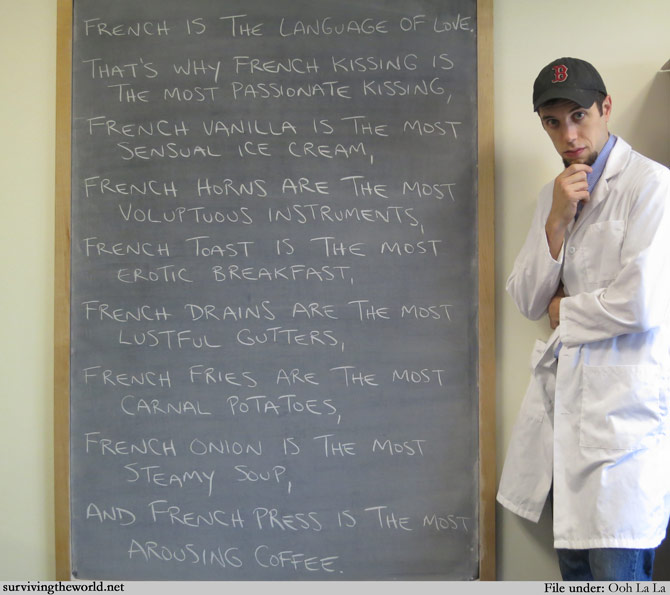 FRENCH IS THE LANGUAGE OF LOVE.
THAT'S WHY FRENCH KISSING IS
THE MOST PASSIONATE KISSING,
FRENCH VANILLA IS THE MOST
SENSUAL ICE CREAM,
FRENCH HORNS ARE THE MOST
VOLUPTUOUS INSTRUMENTS,
FRENCH TOAST IS THE MOST
EROTIC BREAKFAST,
FRENCH DRAINS ARE THE MOST
LUSTFUL GUTTERS,
FRENCH FRIES ARE THE MOST
CARNAL POTATOES,
FRENCH ONION IS THE MOST
STEAMY SOUP,
AND FRENCH PRESS IS THE MOST
AROUSING COFFEE.
B
survivingtheworld.net
File under: Ooh La La